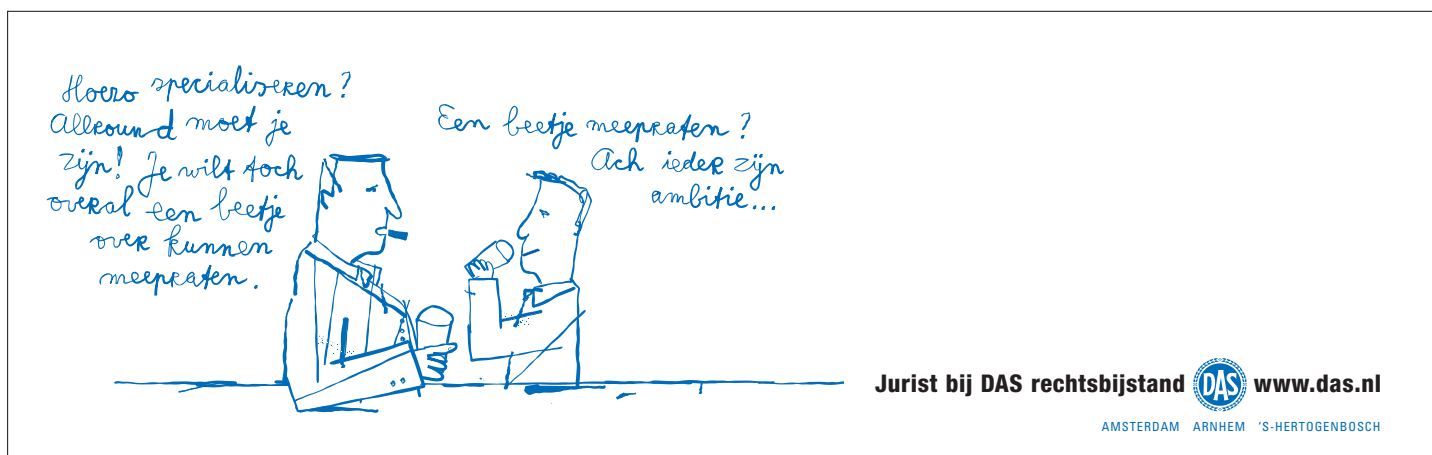 Hoezo specialiseren?
Allround moet je
zijn! Je wilt toch
overal een beetje
over kunnen
meepraten.
Een beetje meepraten?
Ach ieder zijn
ambitie...
Jurist bij DAS rechtsbijstand DAS www.das.nl
AMSTERDAM ARNHEM 'S-HERTOGENBOSCH